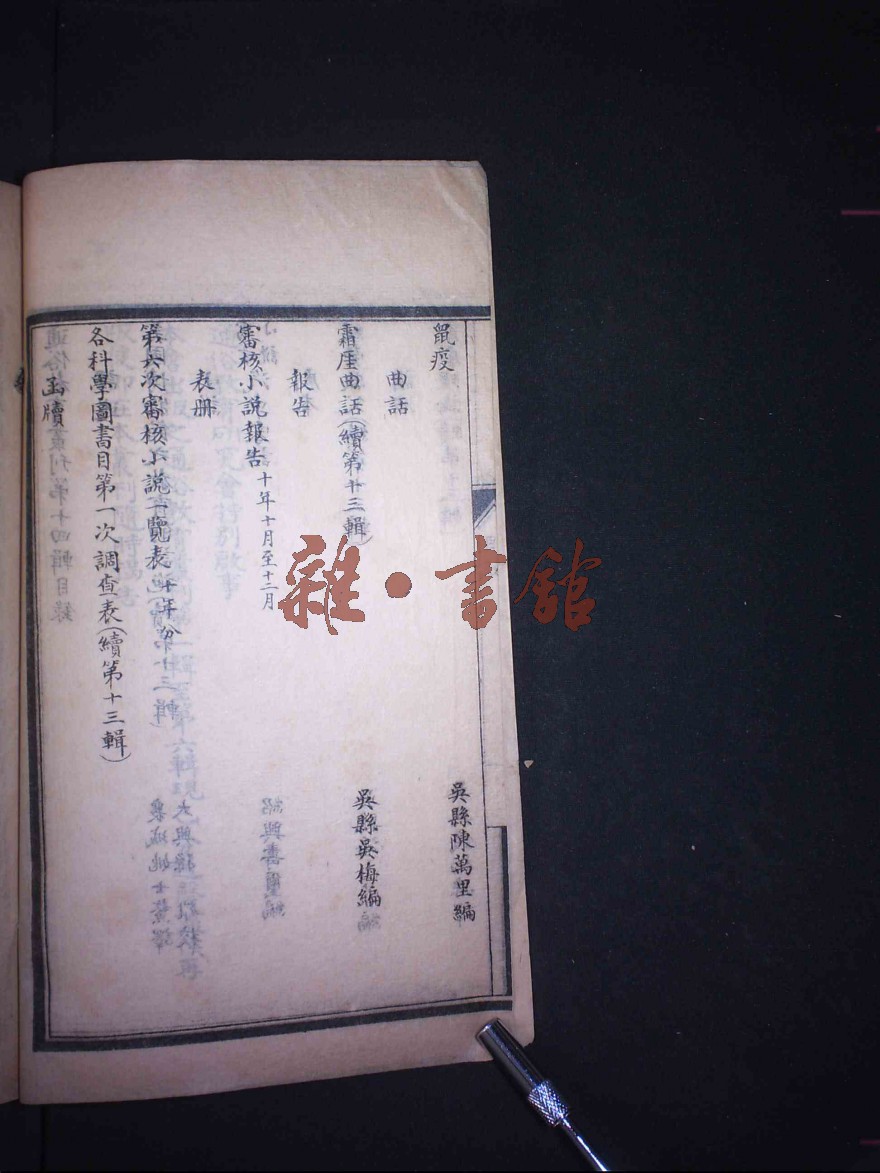 鼠疫
吳縣陳萬里編
曲話
霜厓曲話(續第十三輯)
吳縣吳梅編
報告
審核小說報告十年十月至十二月
表册
第六次審核小說一覽表十年份
各科學圖書目第一次調查表(續第十三輯)
函牘
雜·書館